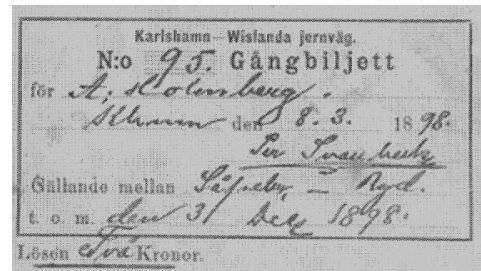 Karlshamn—Wislanda jernväg.
N:o 95. Gångbiljett
för A. Holmberg.
Khamn den 8. 3. 1898.
Per Svanbeck
Gällande mellan — Ryd.
t. o. m. den 31 Dec 1898.
Lösen Två Kronor.